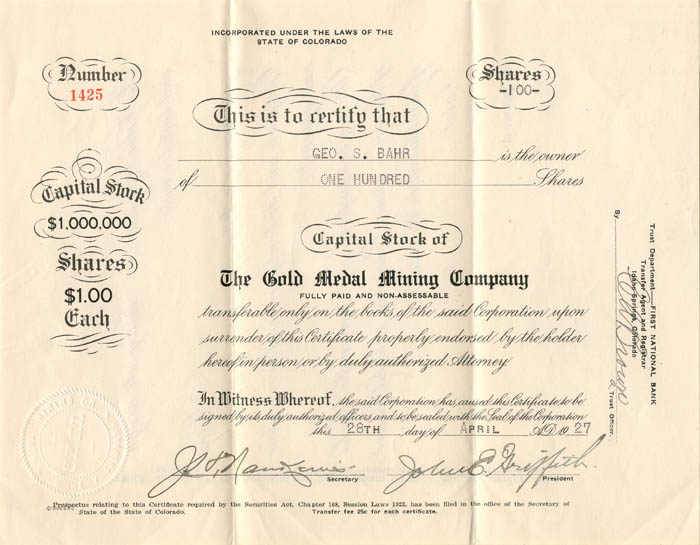 INCORPORATED UNDER THE LAWS OF THE
STATE OF COLORADO
Number
1425
Shares
-100-
This is to certify that
GEO. S. BAHR is the owner
of ONE HUNDRED Shares
Capital Stock
$1,000,000
Shares
$1.00
Each
Capital Stock of
The Gold Medal Mining Company
FULLY PAID AND NON-ASSESSABLE
transferable only on the books of the said Corporation upon
surrender of this Certificate properly endorsed by the holder
hereof in person or by duly authorized Attorney
In Witness Whereof, the said Corporation has caused this Certificate to be
signed by its duly authorized officers and to be sealed with the Seal of the Corporation
this 28TH day of APRIL A.D. 1927
John E. Griffith
Secretary
President
Trust Department—FIRST NATIONAL BANK
Transfer Agent and Registrar
Idaho Springs, Colorado
By
Trust Officer
Prospectus relating to this Certificate required by the Securities Act, Chapter 168, Session Laws 1923, has been filed in the office of the Secretary of
State of the State of Colorado.
Transfer fee 25c for each certificate.